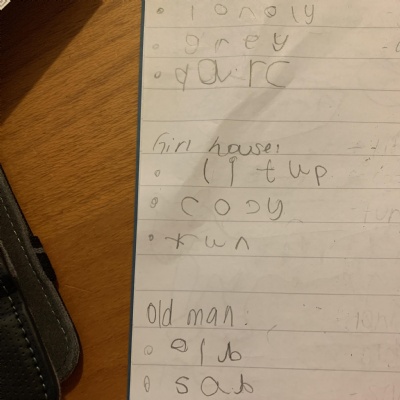 • lonely
• grey
• darc
Girl house:
• lit up
• cosy
Old man:
• olb
• sab